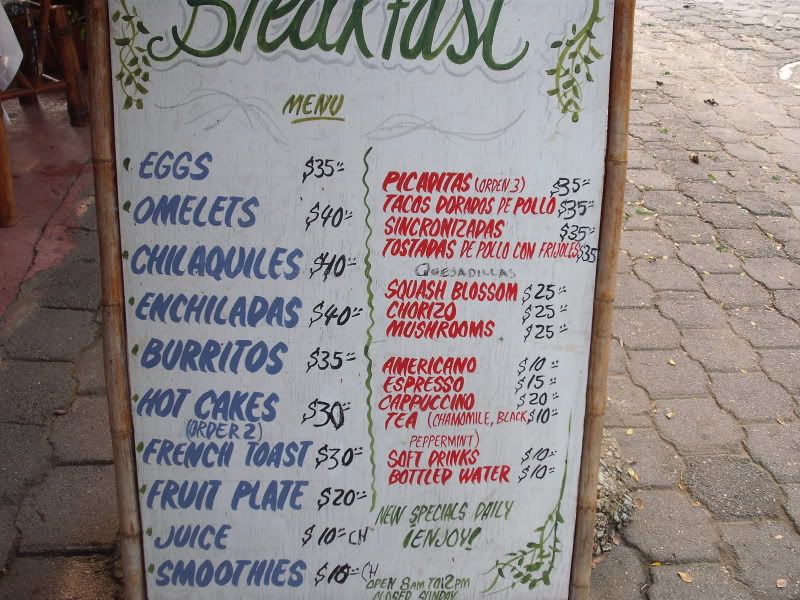 Breakfast
MENU
EGGS $35.=
OMELETS $40.=
CHILAQUILES $40.=
ENCHILADAS $40.=
BURRITOS $35.=
HOT CAKES $30.=
(ORDER 2)
FRENCH TOAST $30.=
FRUIT PLATE $20.=
JUICE $10.= CH
SMOOTHIES CH
PICADITAS (ORDEN 3) $35.=
TACOS DORADOS DE POLLO $35.=
SINCRONIZADAS $35.=
TOSTADAS DE POLLO CON FRIJOLES $35
QUESADILLAS
SQUASH BLOSSOM $25.=
CHORIZO $25.=
MUSHROOMS $25.=
AMERICANO $10.=
ESPRESSO $15.=
CAPPUCCINO $20.=
TEA (CHAMOMILE, BLACK $10.=
PEPPERMINT)
SOFT DRINKS $10.=
BOTTLED WATER $10.=
NEW SPECIALS DAILY
¡ENJOY!
OPEN 8AM TO 12PM
CLOSED SUNDAY